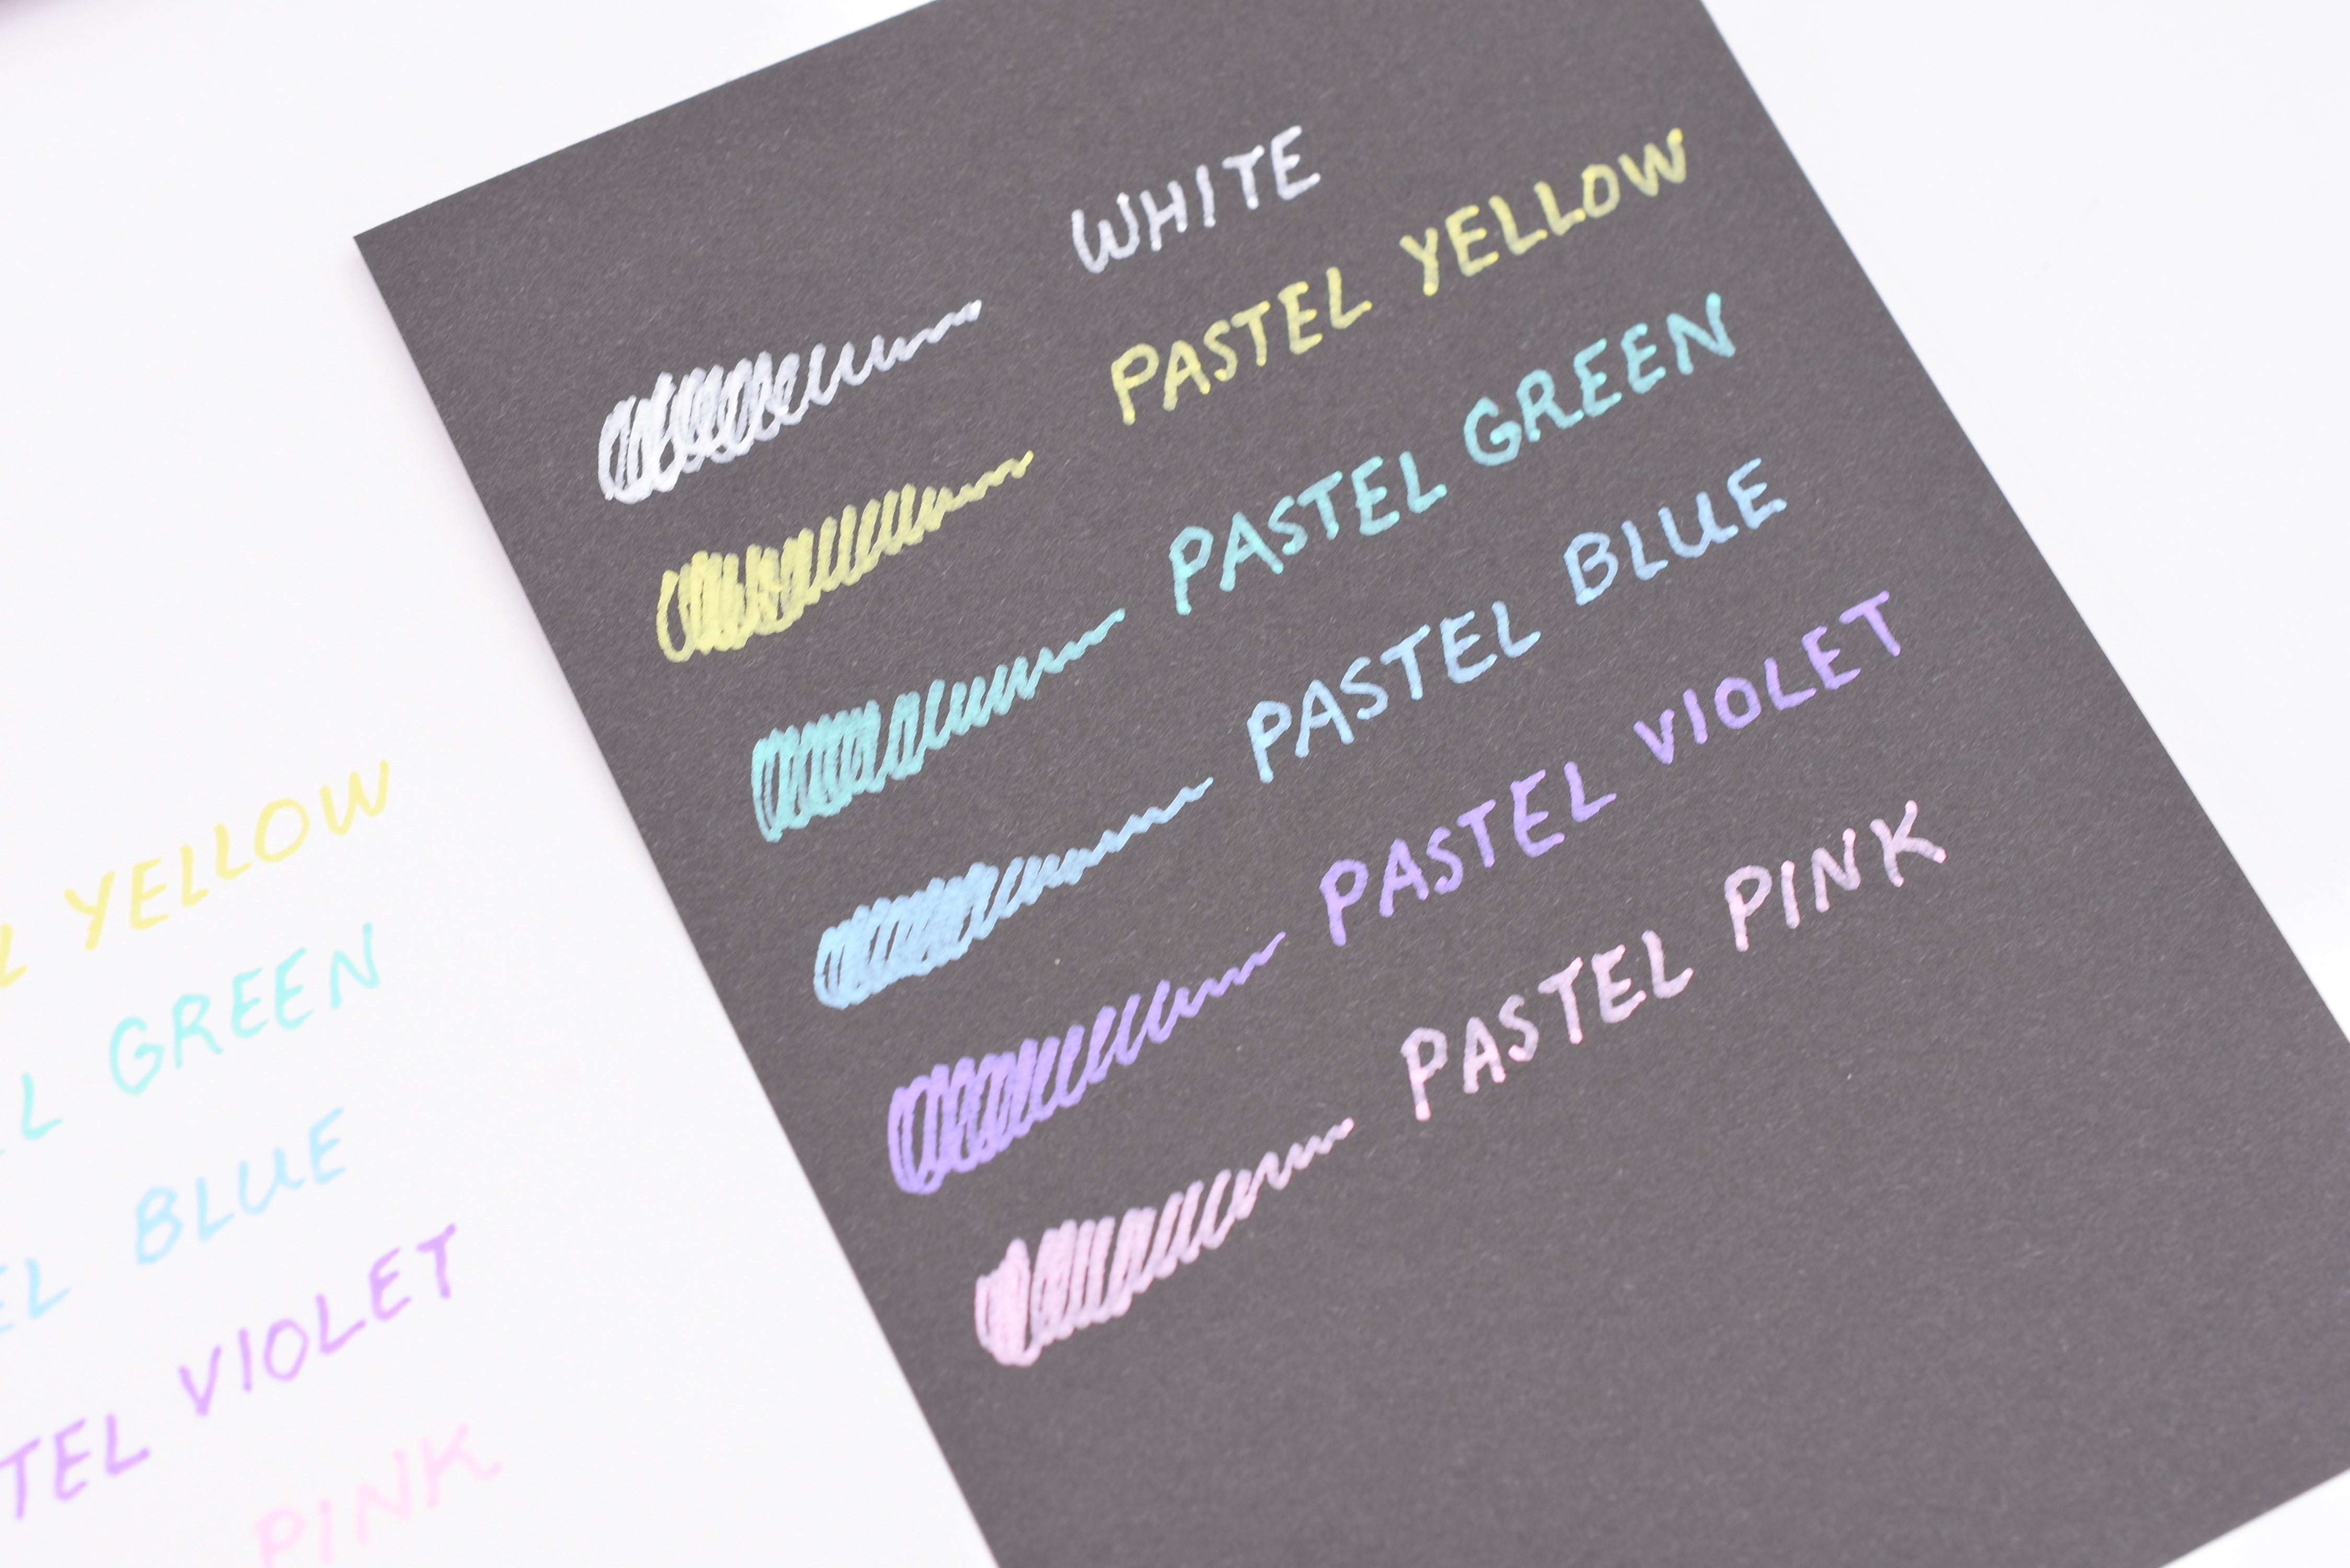 WHITE
PASTEL YELLOW
PASTEL GREEN
PASTEL BLUE
PASTEL VIOLET
PASTEL PINK
L YELLOW
EL GREEN
EL BLUE
TEL VIOLET
PINK